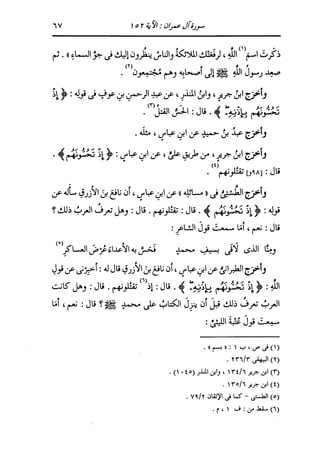 سورة آل عمران : الآية ١٥٢ ٦٧
ذكرتَ اسمَ(١) اللَّهِ ، لرفعَتْك الملائكةُ والناسُ ينظُرون إليك فى جوِّ السماءِ » . ثم
صعِد رسولُ اللَّهِ ﷺ إلى أصحابِه وهم مُجتمِعون(٢) .
وأخرَج ابنُ جريرٍ ، وابنُ المنذرِ ، عن عبدِ الرحمنِ بنِ عوفٍ فى قولِه : ﴿ إِذْ
تَحُسُّونَهُم بِإِذْنِهِۦ ﴾ . قال : الحَسُّ القتلُ(٣) .
وأخرَج عبدُ بنُ حميدٍ عن ابنِ عباسٍ ، مثلَه .
وأخرَج ابنُ جريرٍ ، من طريقِ علىٍّ ، عن ابنِ عباسٍ : ﴿ إِذْ تَحُسُّونَهُم ﴾ .
قال : [٩٨و] تقتُلونهم(٤) .
وأخرَج الطستىُّ فى « مسائلِه » عن ابنِ عباسٍ ، أن نافعَ بنَ الأزرقِ سأله عن
قولِه : ﴿ إِذْ تَحُسُّونَهُم بِإِذْنِهِۦ ﴾ . قال : تقتُلونهم . قال : وهل تعرِفُ العربُ ذلك ؟
قال : نعم ، أمَا سمِعتَ قولَ الشاعرِ :
ومِنَّا الذى لاقَى بسيفِ محمدٍ فحَسَّ به الأعداءَ عُرْضَ العساكرِ(٥)
وأخرَج الطبرانىُّ عن ابنِ عباسٍ ، أن نافعَ بنَ الأزرقِ قال له : أخبِرْنى عن قولِ
اللَّهِ : ﴿ إِذْ تَحُسُّونَهُم بِإِذْنِهِۦ ﴾ . قال : إذ(٦) تقتُلونهم . قال : وهل كانت
العربُ تعرِفُ ذلك قبلَ أن ينزِلَ الكتابُ على محمدٍ ﷺ ؟ قال : نعم ، أمَا
سمِعتَ قولَ عُتْبةَ الليثىِّ :
(١) فى ص ، ب ١ : « بسم » .
(٢) البيهقى ٢٣٦/٣ .
(٣) ابن جرير ١٣٤/٦ ، وابن المنذر (١٠٤٥) .
(٤) ابن جرير ١٣٥/٦ .
(٥) الطستى - كما فى الإتقان ٧٩/٢ .
(٦) سقط من : ف ١ ، م .